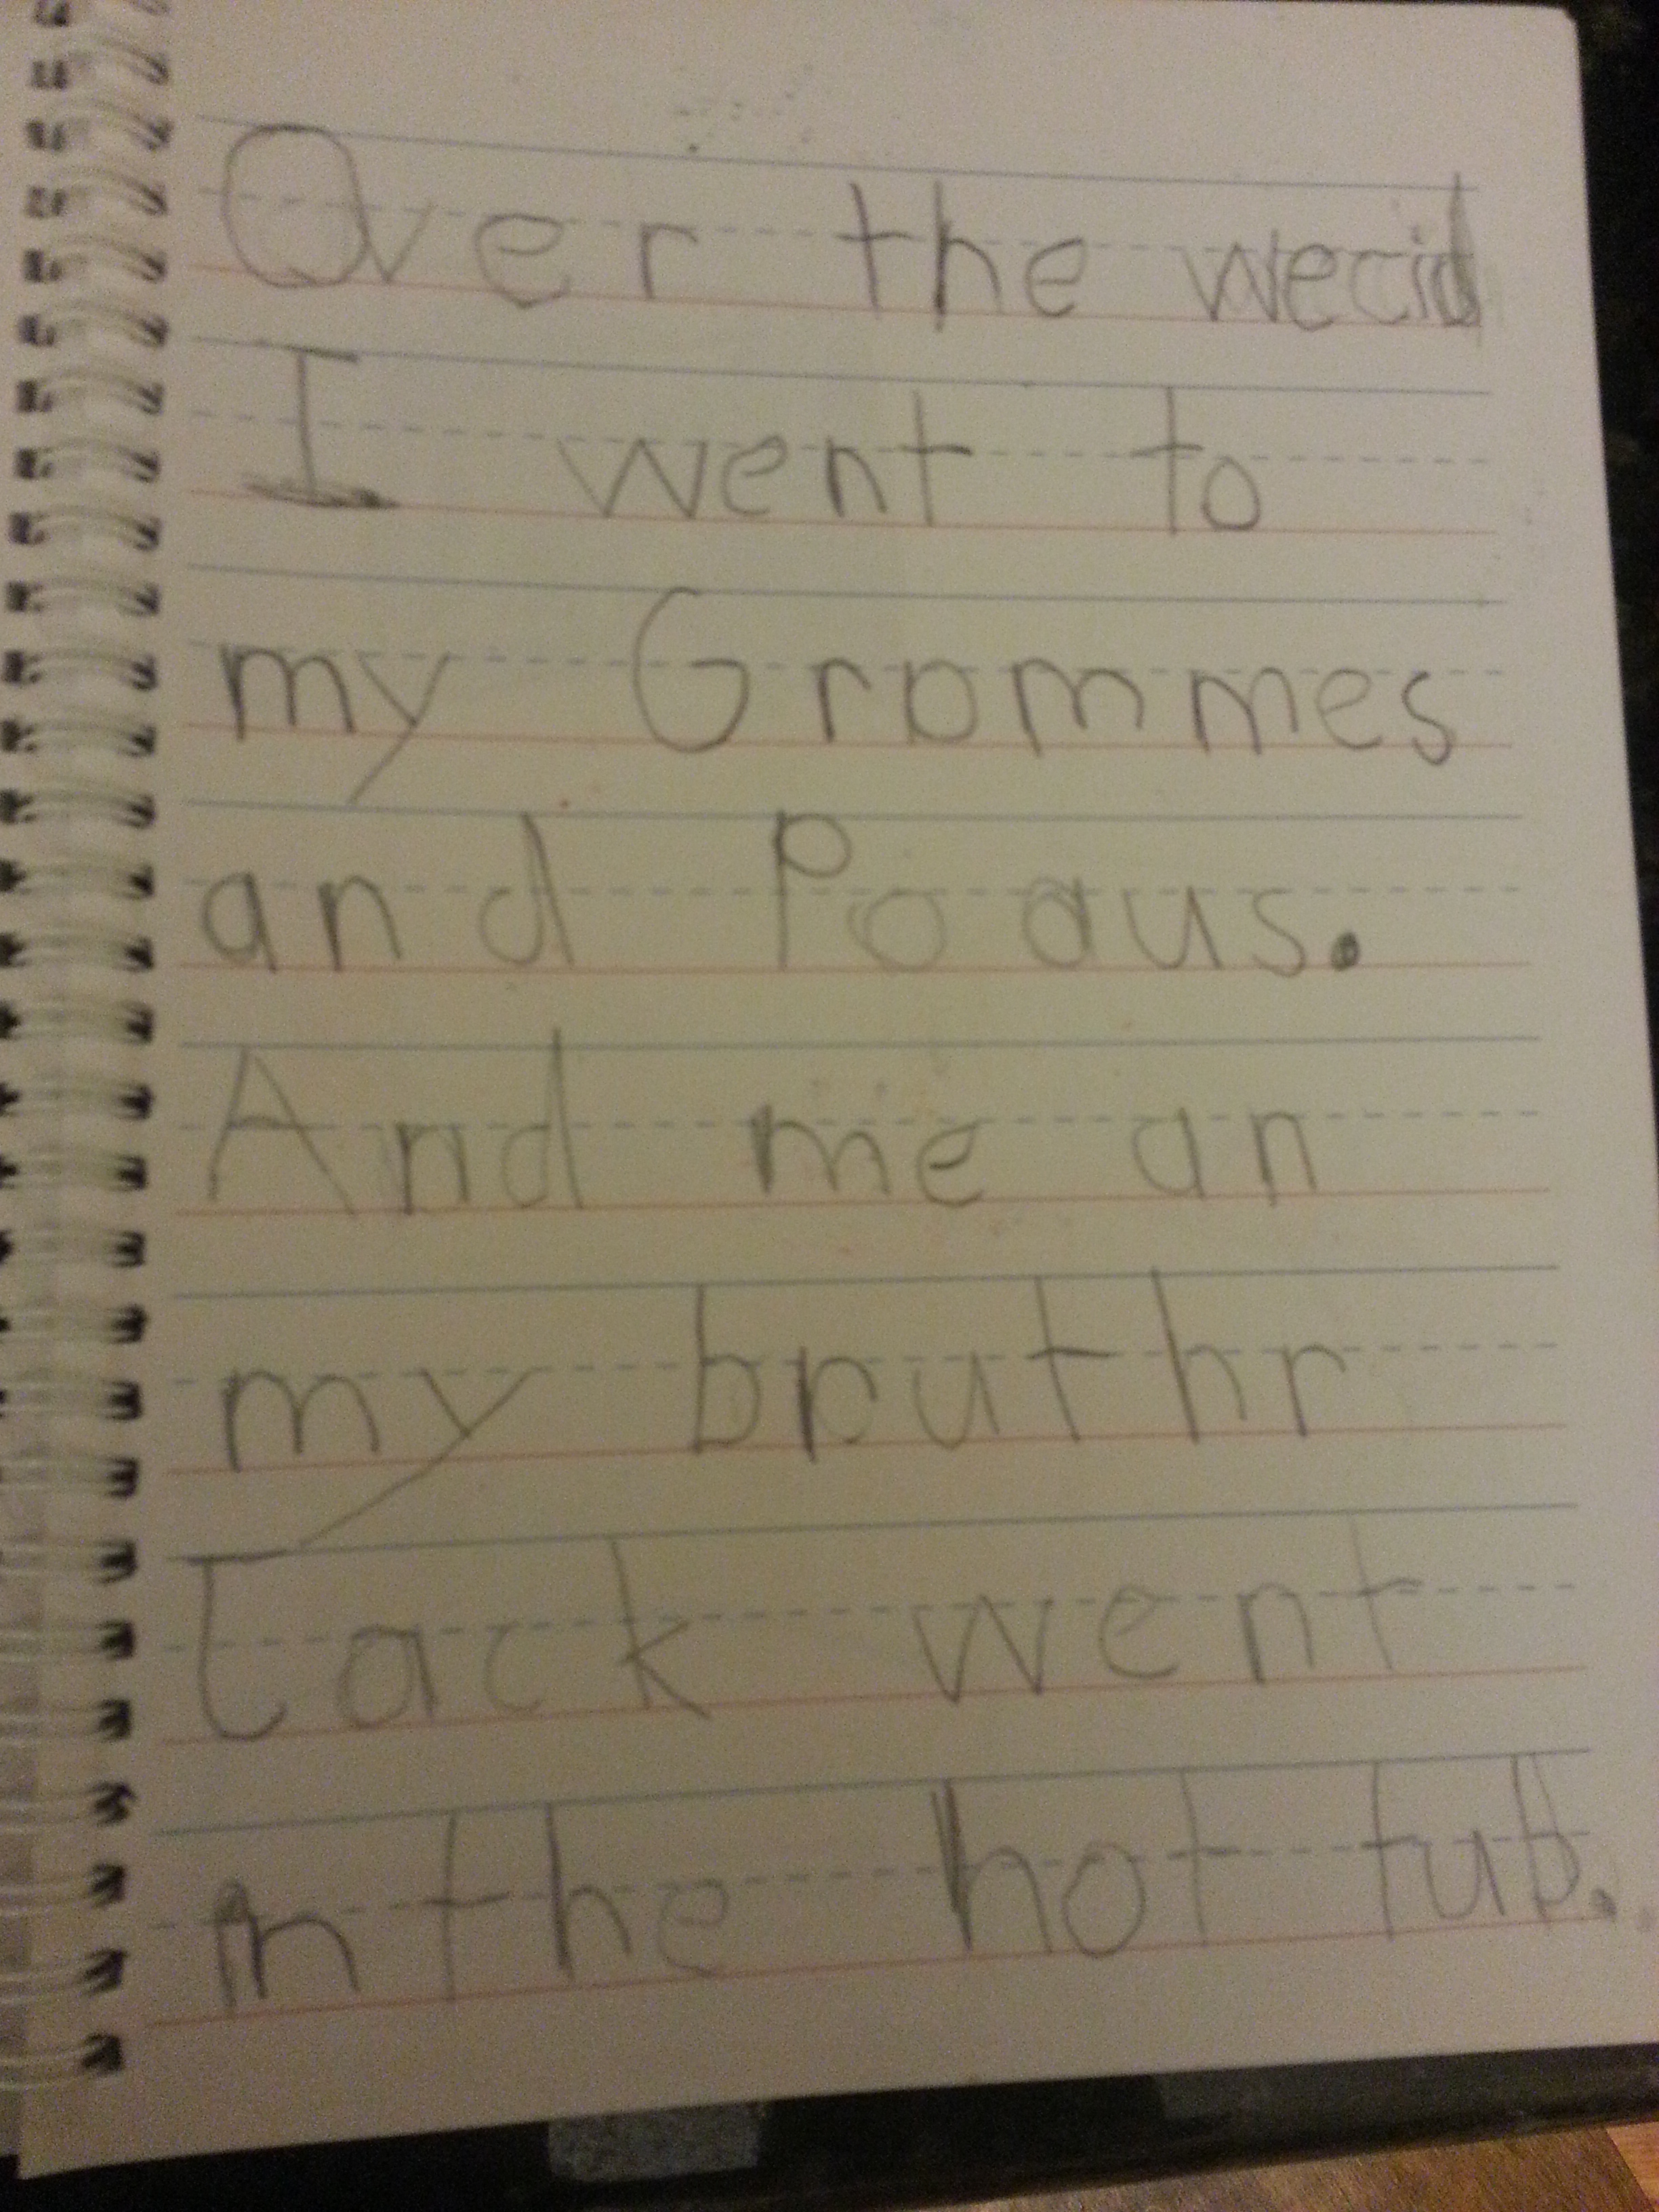 Over the wecid
I went to
my Grommes
and Poaus.
And me an
my bruthr
Jack went
in the hot tub.